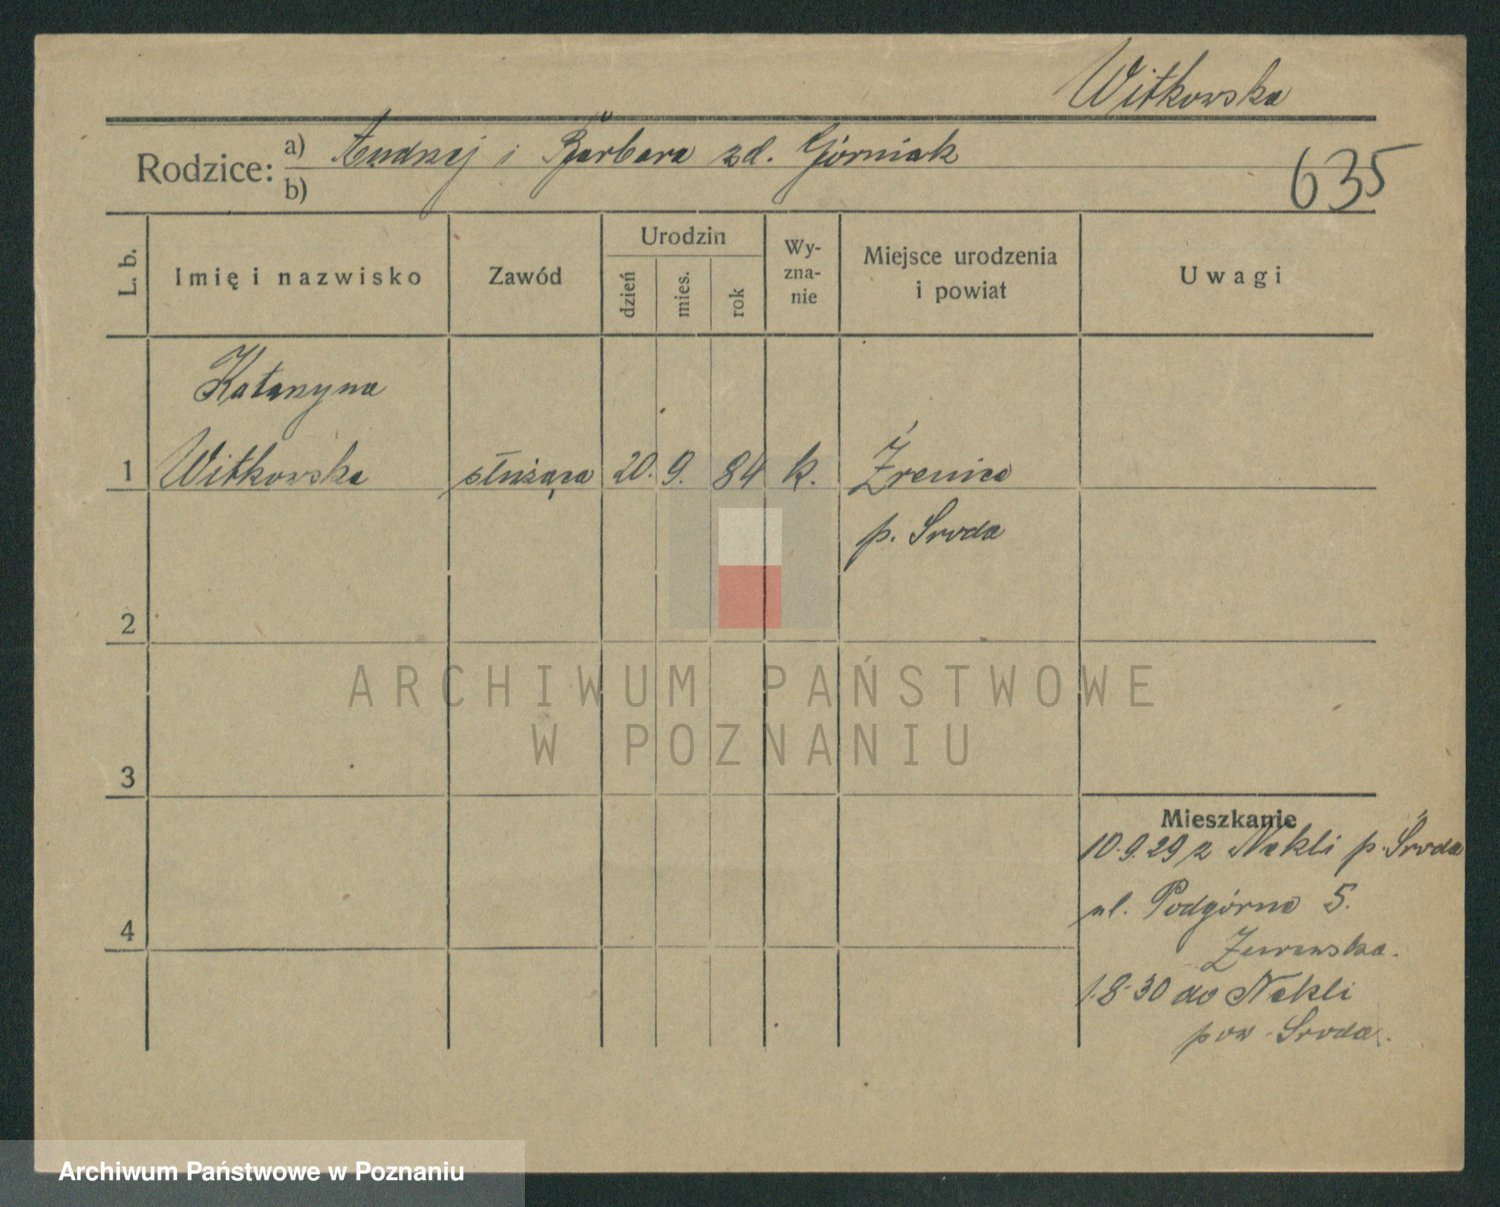 Witkowska
Rodzice: a) Andrzej i Barbara zd. Górniak
b)
635
L. b.
Imię i nazwisko
Zawód
Urodzin
dzień
mies.
rok
Wy-
zna-
nie
Miejsce urodzenia
i powiat
Uwagi
Katarzyna
1 Witkowska służąca 20. 9. 84 k. Źrenica
p. Sroda
2
ARCHIWUM PAŃSTWOWE
W POZNANIU
3
Mieszkanie
10.9.29 z Nekli p. Środa
ul. Podgórna 5.
4
Żurawska.
1.8-30 do Nekli
pow. Sroda.
Archiwum Państwowe w Poznaniu